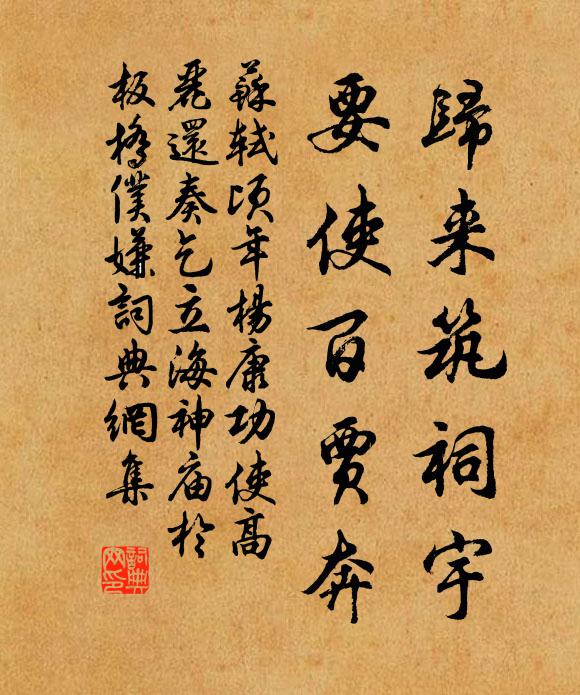 歸来筑祠宇
要使百賈奔
蘇軾頃年楊康功使高
麗還奏乞立海神庙於
板橋僕嫌詞典網集
詞典
网印